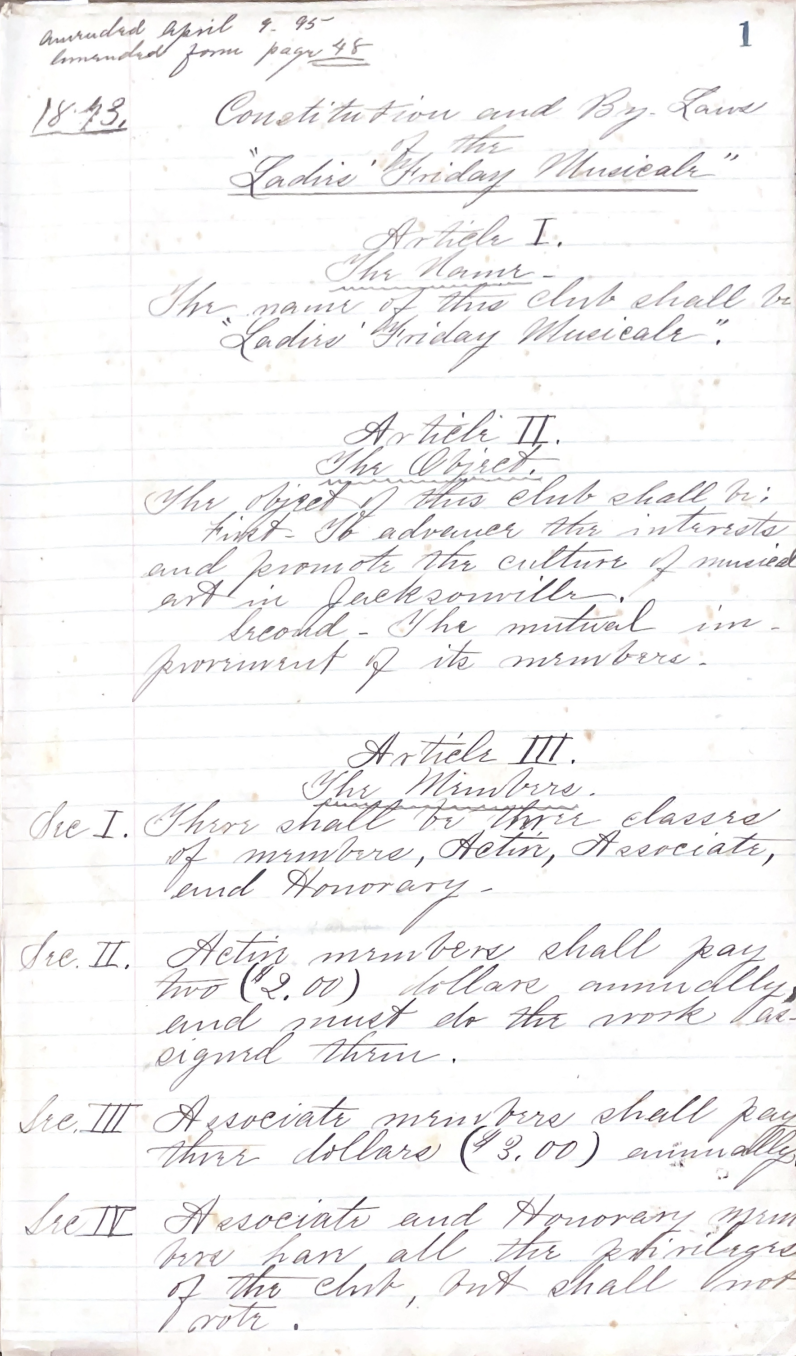 amended April 9. 95
Amended form page 48
1
1893.
Constitution and By-Laws
of the
"Ladies' Friday Musicale"
Article I.
The Name-
The name of this club shall be
"Ladies' Friday Musicale".
Article II.
The Object.
The object of this club shall be:
First- To advance the interests
and promote the culture of musical
art in Jacksonville.
Second- The mutual im-
provement of its members-
Article III.
The Members.
Sec I. There shall be three classes
of members, Active, Associate,
and Honorary-
Sec. II. Active members shall pay
two ($2.00) dollars annually,
and must do the work as-
signed them.
Sec. III Associate members shall pay
three dollars ($3.00) annually
Sec IV Associate and Honorary mem
bers have all the privileges
of the club, but shall not
vote.